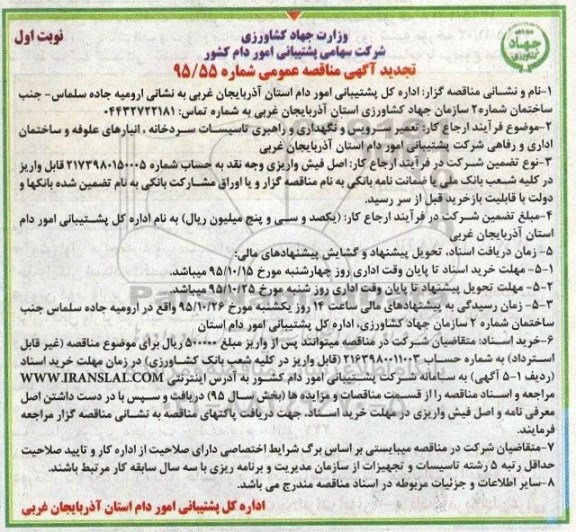 وزارت جهاد کشاورزی
شرکت سهامی پشتیبانی امور دام کشور
نوبت اول
جهاد کشاورزی
تجدید آگهی مناقصه عمومی شماره ۹۵/۵۵
۱-نام و نشانی مناقصه گزار: اداره کل پشتیبانی امور دام استان آذربایجان غربی به نشانی ارومیه جاده سلماس- جنب
ساختمان شماره۲ سازمان جهاد کشاورزی استان آذربایجان غربی به شماره تماس: ۰۴۴۳۲۷۲۲۱۸۱
۲-موضوع فرآیند ارجاع کار: تعمیر سرویس و نگهداری و راهبری تاسیسات سردخانه ، انبارهای علوفه و ساختمان
اداری و رفاهی شرکت پشتیبانی امور دام استان آذربایجان غربی
۳-نوع تضمین شرکت در فرآیند ارجاع کار: اصل فیش واریزی وجه نقد به حساب شماره ۲۱۷۳۹۸۰۱۵۰۰۰۵ قابل واریز
در کلیه شعب بانک ملی یا ضمانت نامه بانکی به نام مناقصه گزار و یا اوراق مشارکت بانکی به نام تضمین شده بانکها و
دولت با قابلیت بازخرید قبل از سر رسید.
۴-مبلغ تضمین شرکت در فرآیند ارجاع کار: (یکصد و سی و پنج میلیون ریال) به نام اداره کل پشتیبانی امور دام
استان آذربایجان غربی
۵- زمان دریافت اسناد، تحویل پیشنهاد و گشایش پیشنهادهای مالی:
۵-۱- مهلت خرید اسناد تا پایان وقت اداری روز چهارشنبه مورخ ۹۵/۱۰/۱۵ میباشد.
۵-۲- مهلت تحویل پیشنهاد تا پایان وقت اداری روز شنبه مورخ ۹۵/۱۰/۲۵ میباشد.
۵-۳- زمان رسیدگی به پیشنهادهای مالی ساعت ۱۴ روز یکشنبه مورخ ۹۵/۱۰/۲۶ واقع در ارومیه جاده سلماس جنب
ساختمان شماره ۲ سازمان جهاد کشاورزی، اداره کل پشتیبانی امور دام استان
۶-خرید اسناد: متقاضیان شرکت در مناقصه میتوانند پس از واریز مبلغ ۵۰۰۰۰۰ ریال برای موضوع مناقصه (غیر قابل
استرداد) به شماره حساب ۲۱۶۳۹۸۰۰۱۱۰۰۳ (قابل واریز در کلیه شعب بانک کشاورزی) در زمان مهلت خرید اسناد
(ردیف ۱-۵ آگهی) به سامانه شرکت پشتیبانی امور دام کشور به آدرس اینترنتی WWW.IRANSLAL.COM
مراجعه و اسناد مناقصه را از قسمت مناقصات و مزایده ها (بخش سال ۹۵) دریافت و سپس با در دست داشتن اصل
معرفی نامه و اصل فیش واریزی در مهلت خرید اسناد، جهت دریافت پاکتهای مناقصه به نشانی مناقصه گزار مراجعه
فرمایند.
۷-متقاضیان شرکت در مناقصه میبایستی بر اساس برگ شرایط اختصاصی دارای صلاحیت از اداره کار و تایید صلاحیت
حداقل رتبه ۵ رشته تاسیسات و تجهیزات از سازمان مدیریت و برنامه ریزی با سه سال سابقه کار مرتبط باشند.
۸-سایر اطلاعات و جزئیات مربوطه در اسناد مناقصه مندرج می باشد.
اداره کل پشتیبانی امور دام استان آذربایجان غربی